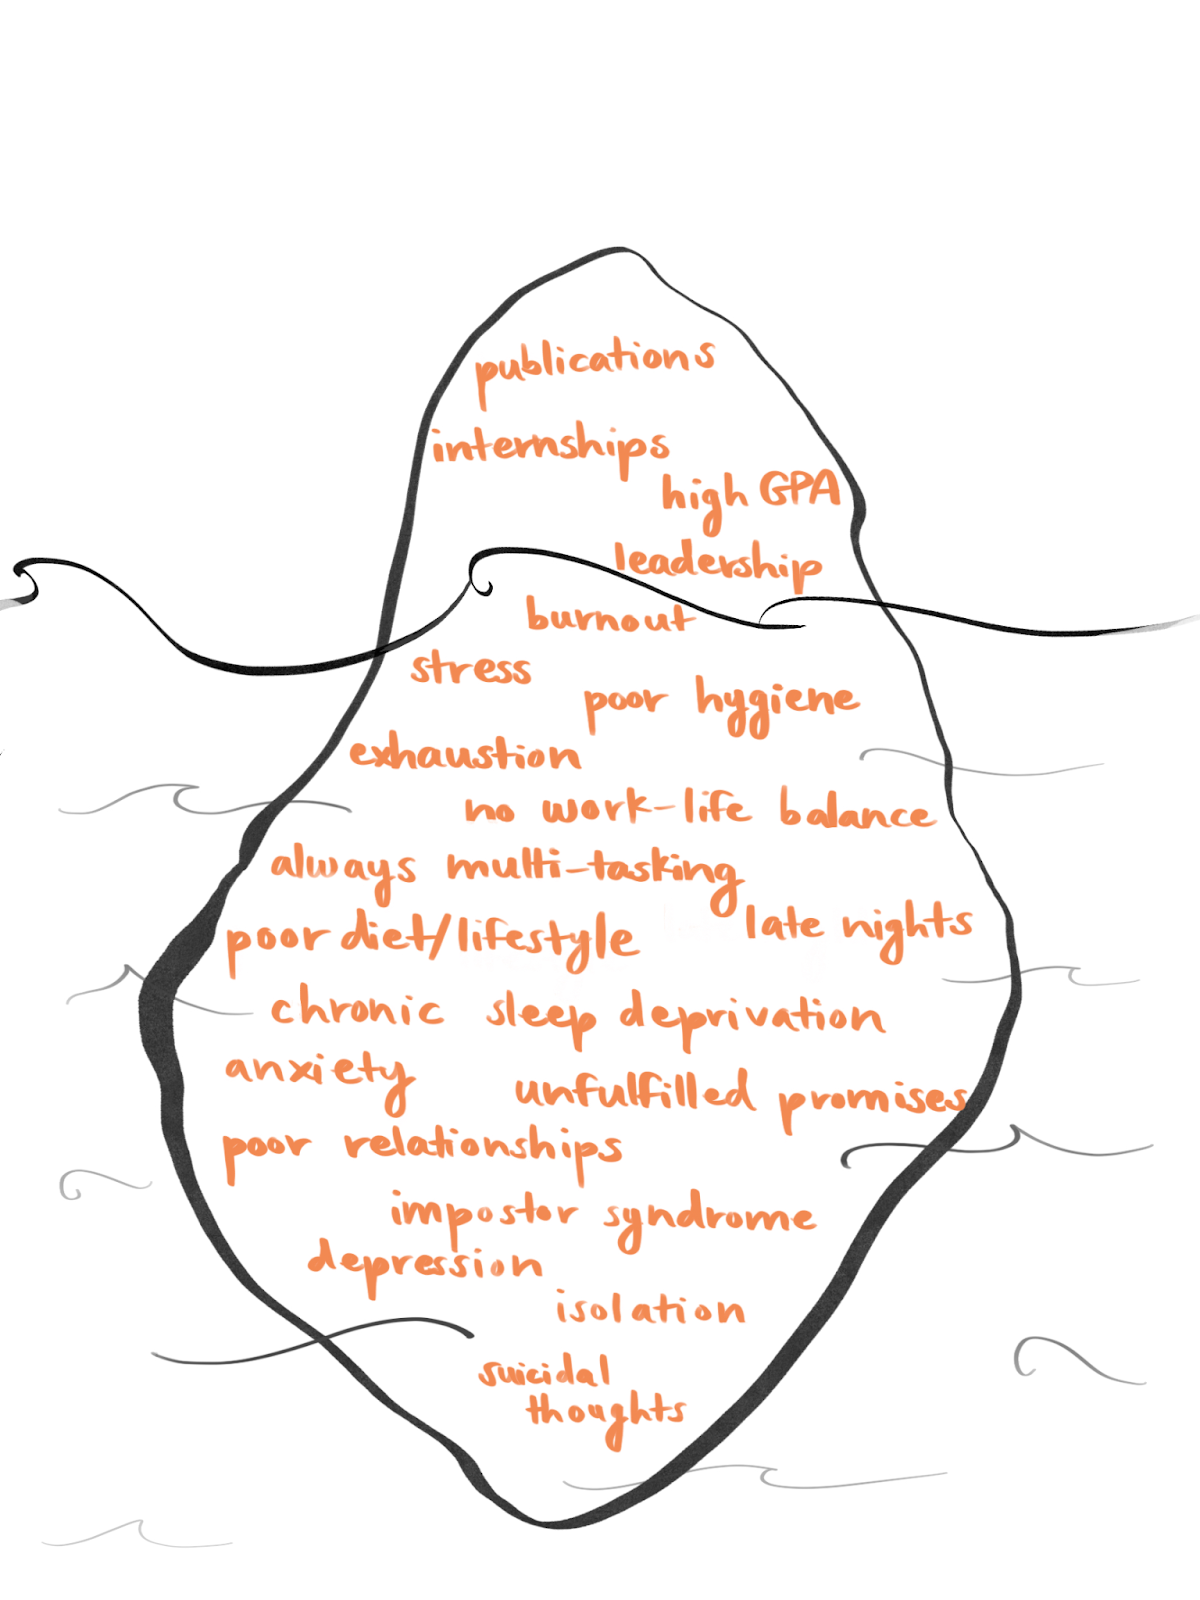 publications
internships
high GPA
leadership
burnout
stress
poor hygiene
exhaustion
no work-life balance
always multi-tasking
late nights
poor diet/lifestyle
chronic sleep deprivation
anxiety
unfulfilled promises
poor relationships
impostor syndrome
depression
isolation
suicidal
thoughts